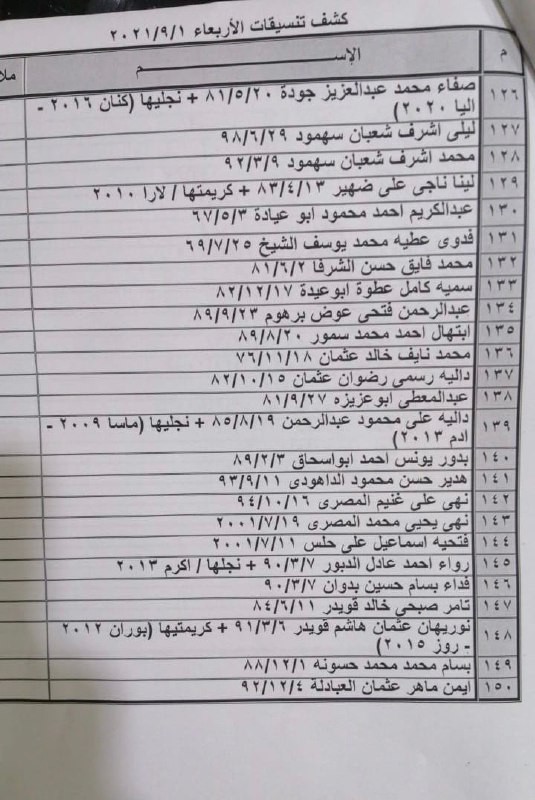 كشف تنسيقات الأربعاء ٢٠٢١/٩/١
م الإســـــــــــــــم ملا
١٢٦ صفاء محمد عبدالعزيز جودة ٨١/٥/٢٠ + نجليها (كنان ٢٠١٦ -
اليا ٢٠٢٠)
١٢٧ ليلى اشرف شعبان سهمود ٩٨/٦/٢٩
١٢٨ محمد اشرف شعبان سهمود ٩٢/٣/٩
١٢٩ لينا ناجى على ضهير ٨٣/٤/١٣ + كريمتها / لارا ٢٠١٠
١٣٠ عبدالكريم احمد محمود ابو عيادة ٦٧/٥/٣
١٣١ فدوى عطيه محمد يوسف الشيخ ٦٩/٧/٢٥
١٣٢ محمد فايق حسن الشرفا ٨١/٦/٢
١٣٣ سميه كامل عطوة ابوعيدة ٨٢/١٢/١٧
١٣٤ عبدالرحمن فتحى عوض برهوم ٨٩/٩/٢٣
١٣٥ ابتهال احمد محمد سمور ٨٩/٨/٢٠
١٣٦ محمد نايف خالد عثمان ٧٦/١١/١٨
١٣٧ داليه رسمى رضوان عثمان ٨٢/١٠/١٥
١٣٨ عبدالمعطى ابوعزيزه ٨١/٩/٢٧
١٣٩ داليه على محمود عبدالرحمن ٨٥/٨/١٩ + نجليها (ماسا ٢٠٠٩ -
ادم ٢٠١٣)
١٤٠ بدور يونس احمد ابواسحاق ٨٩/٢/٣
١٤١ هدير حسن محمود الداهودى ٩٣/٩/١١
١٤٢ نهى على غنيم المصرى ٩٤/١٠/١٦
١٤٣ نهى يحيى محمد المصرى ٢٠٠١/٧/١٩
١٤٤ فتحيه اسماعيل على حلس ٢٠٠١/٧/١١
١٤٥ رواء احمد عادل الدبور ٩٠/٣/٧ + نجلها / اكرم ٢٠١٣
١٤٦ فداء بسام حسين بدوان ٩٠/٣/٧
١٤٧ تامر صبحي خالد قويدر ٨٤/٦/١١
١٤٨ نوريهان عثمان هاشم قويدر ٩١/٣/٦ + كريمتيها (بوران ٢٠١٢
- روز ٢٠١٥)
١٤٩ بسام محمد محمد حسونه ٨٨/١٢/١
١٥٠ ايمن ماهر عثمان العبادلة ٩٢/١٢/٤